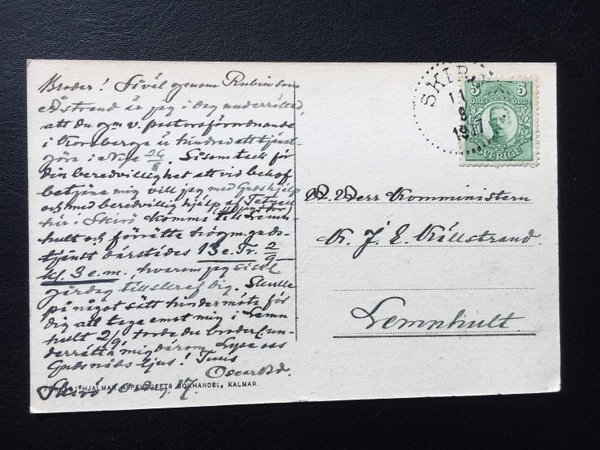 Broder! Såväl genom Rubin som
Åstrand är jag i dag underrättad,
att du gm v. pastorsförordnande
i Korsberga är hindrad att tjänst-
göra i N-sjö 26/8. Såsom tack för
Din beredvillighet att vid behof
betjäna mig vill jag med Guds hjälp
och med beredvillig hjälp af
här i Skirö komma till Lemn-
hult och förrätta högm. guds-
tjänst därstädes 13 e. Tr. 2/9
kl. 3 e.m., hvarom jag
till dig. Skulle
på något sätt hinder möta för
dig att taga emot mig i Lemn-
hult 2/9, torde du broderl. un-
derrätta mig därom. Lyse oss
Guds nåds ljus! Tuus
Oscar
Skirö 10. 8. 17.
HJALMAR APPELTOFFTS BOKHANDEL, KALMAR.
SKIRÖ
11
8
1917
5 5
SVERIGE
Herr Komministern
J. E. Källstrand
Lemnhult